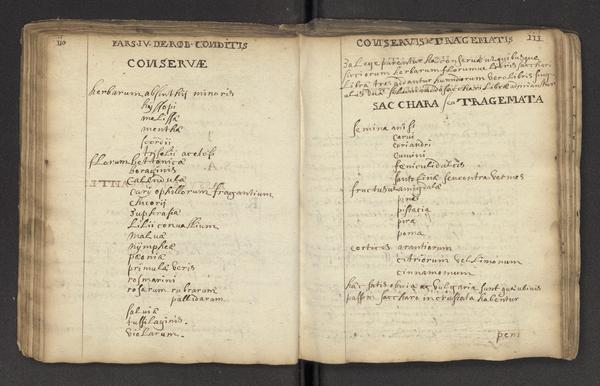 110
PARS·IV·DE·ROB·CONDITIS
CONSERVÆ
herbarum absinthij minoris
hyssopi
melissæ
menthæ
scordii
trifolii acetosi
florum bettonicæ
boraginis
Calendulæ
caryophillorum fragantium
chicorii
Euphrasiæ
Lilii convallium
malvæ
nympheæ
pæoniæ
primulæ veris
rosmarini
rosarum rubrarum
pallidarum
salviæ
tussilaginis.
violarum.
CONSERVIS TRAGEMATIS
111
Ea Lege parantur hæ conservæ ut quibusque
florumve libris sacchari
Libræ tres addantur humidorum vero Libris
duæ sacchari Libræ
SACCHARA seu TRAGEMATA
semina anisi
carvi
coriandri
cumini
feniculi dulcis
santolinæ seu contra vermes
fructus amigdalæ
pineæ
pistacia
pira
poma
cortices arantiorum
citriorum vel Limonum
cinnamomum
hæc satis obvia ac vulgaria sunt quæ ubivis
passim saccharo incrustata habentur
peni